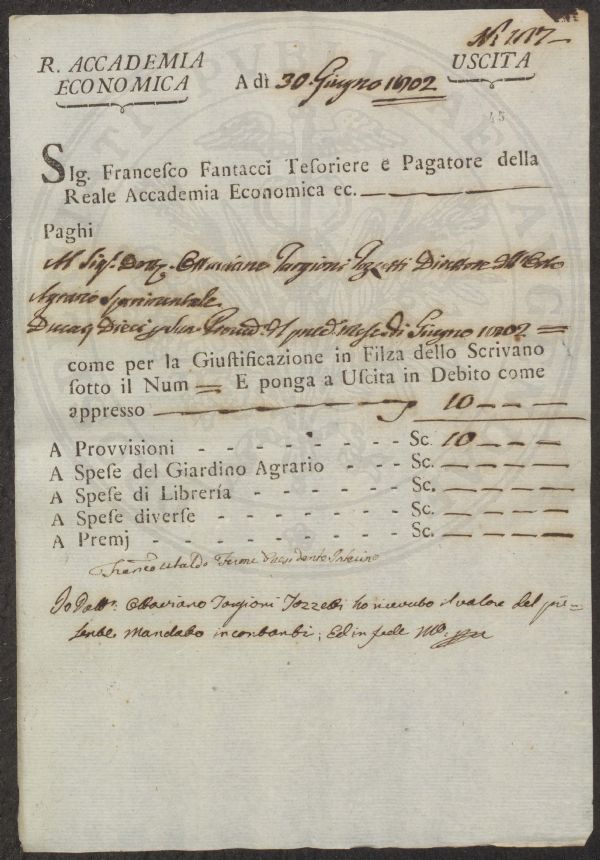 R. ACCADEMIA
ECONOMICA
A dì 30. Giugno 1802
USCITA
45
SIg. Francesco Fantacci Tesoriere e Pagatore della
Reale Accademia Economica ec.
Paghi
Al Sigr. Dottr. Ottaviano Targioni Tozzetti Direttore dell' Orto
Agrario Sperimentale
Ducati Dieci p. Sua Provvd. del pnte. Mese di Giugno 1802
come per la Giustificazione in Filza dello Scrivano
sotto il Num E ponga a Uscita in Debito come
appresso 10
A Provvisioni - - - - - - - - Sc. 10
A Spese del Giardino Agrario - - - Sc.
A Spese di Librería - - - - - - Sc.
A Spese diverse - - - - - - - Sc.
A Premj - - - - - - - - - Sc.
Presidente Interino
Io Dottr. Ottaviano Targioni Tozzetti ho ricevuto il valore del pre=
sente Mandato in contanti; Ed in fede Mo. ppa